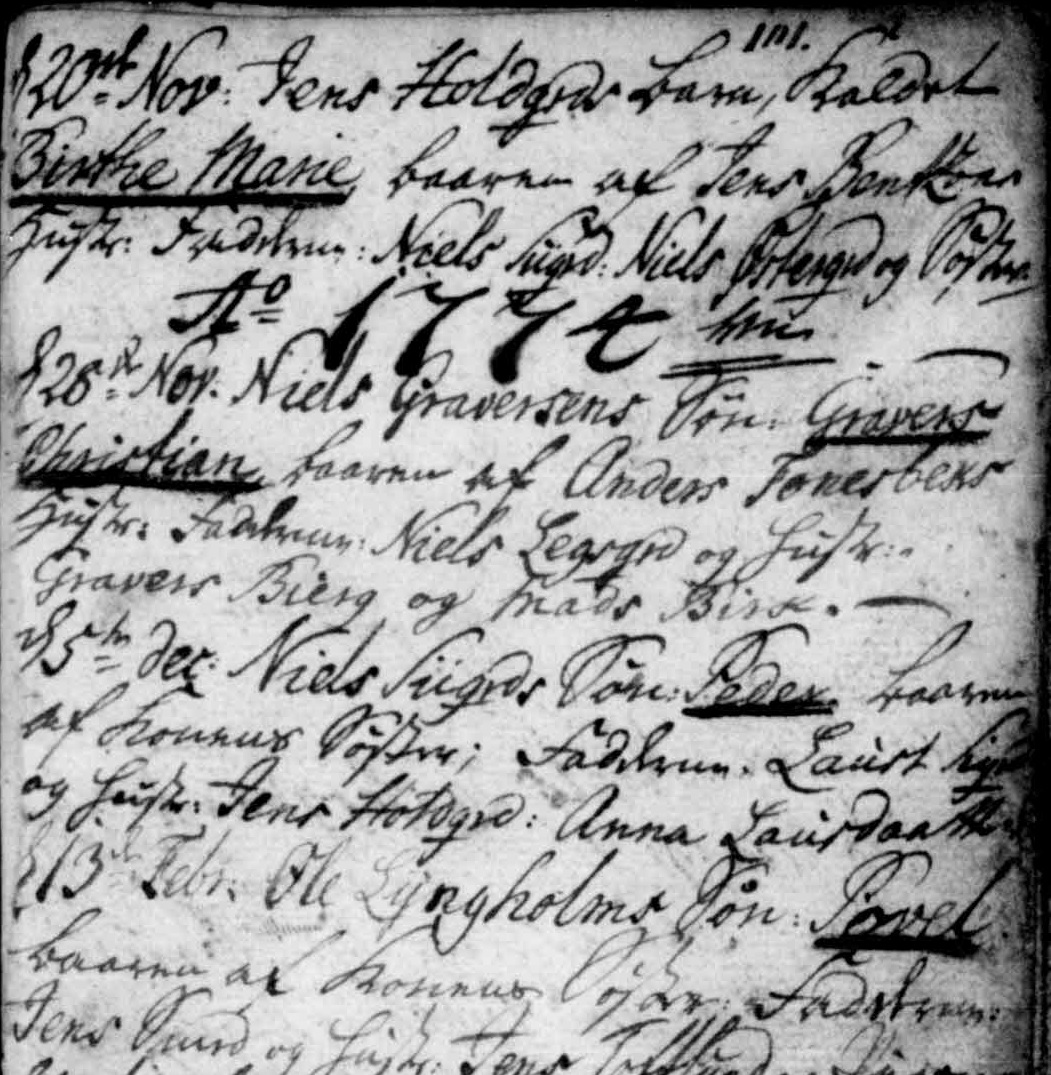 101.
d 20de Nov: Jens Holdgrds barn, kaldet
Birthe Marie, baaren af Jens Bentzens
Hustr: Fadderne: Niels Siigrd: Niels Østergrd og Søster
Ao 1774
d 28de Nov. Niels Graversens Søn: Gravers
Christian, baaren af Anders Fonesbeks
Hustr: Fadderne: Niels Legrgrd og Hustr:
Gravers Bierg og Mads Birk.
d 5te dec: Niels Siigrds Søn: Peder baaren
af Konens Søster; Fadderne. Laust
og Hustr: Jens Holdgrd: Anna Lausdaatter
d 13de Febr. Ole Lyngholms Søn: Povel
baaren af Konens Søster: Fadderne:
Jens Sund og Hustr: Jens